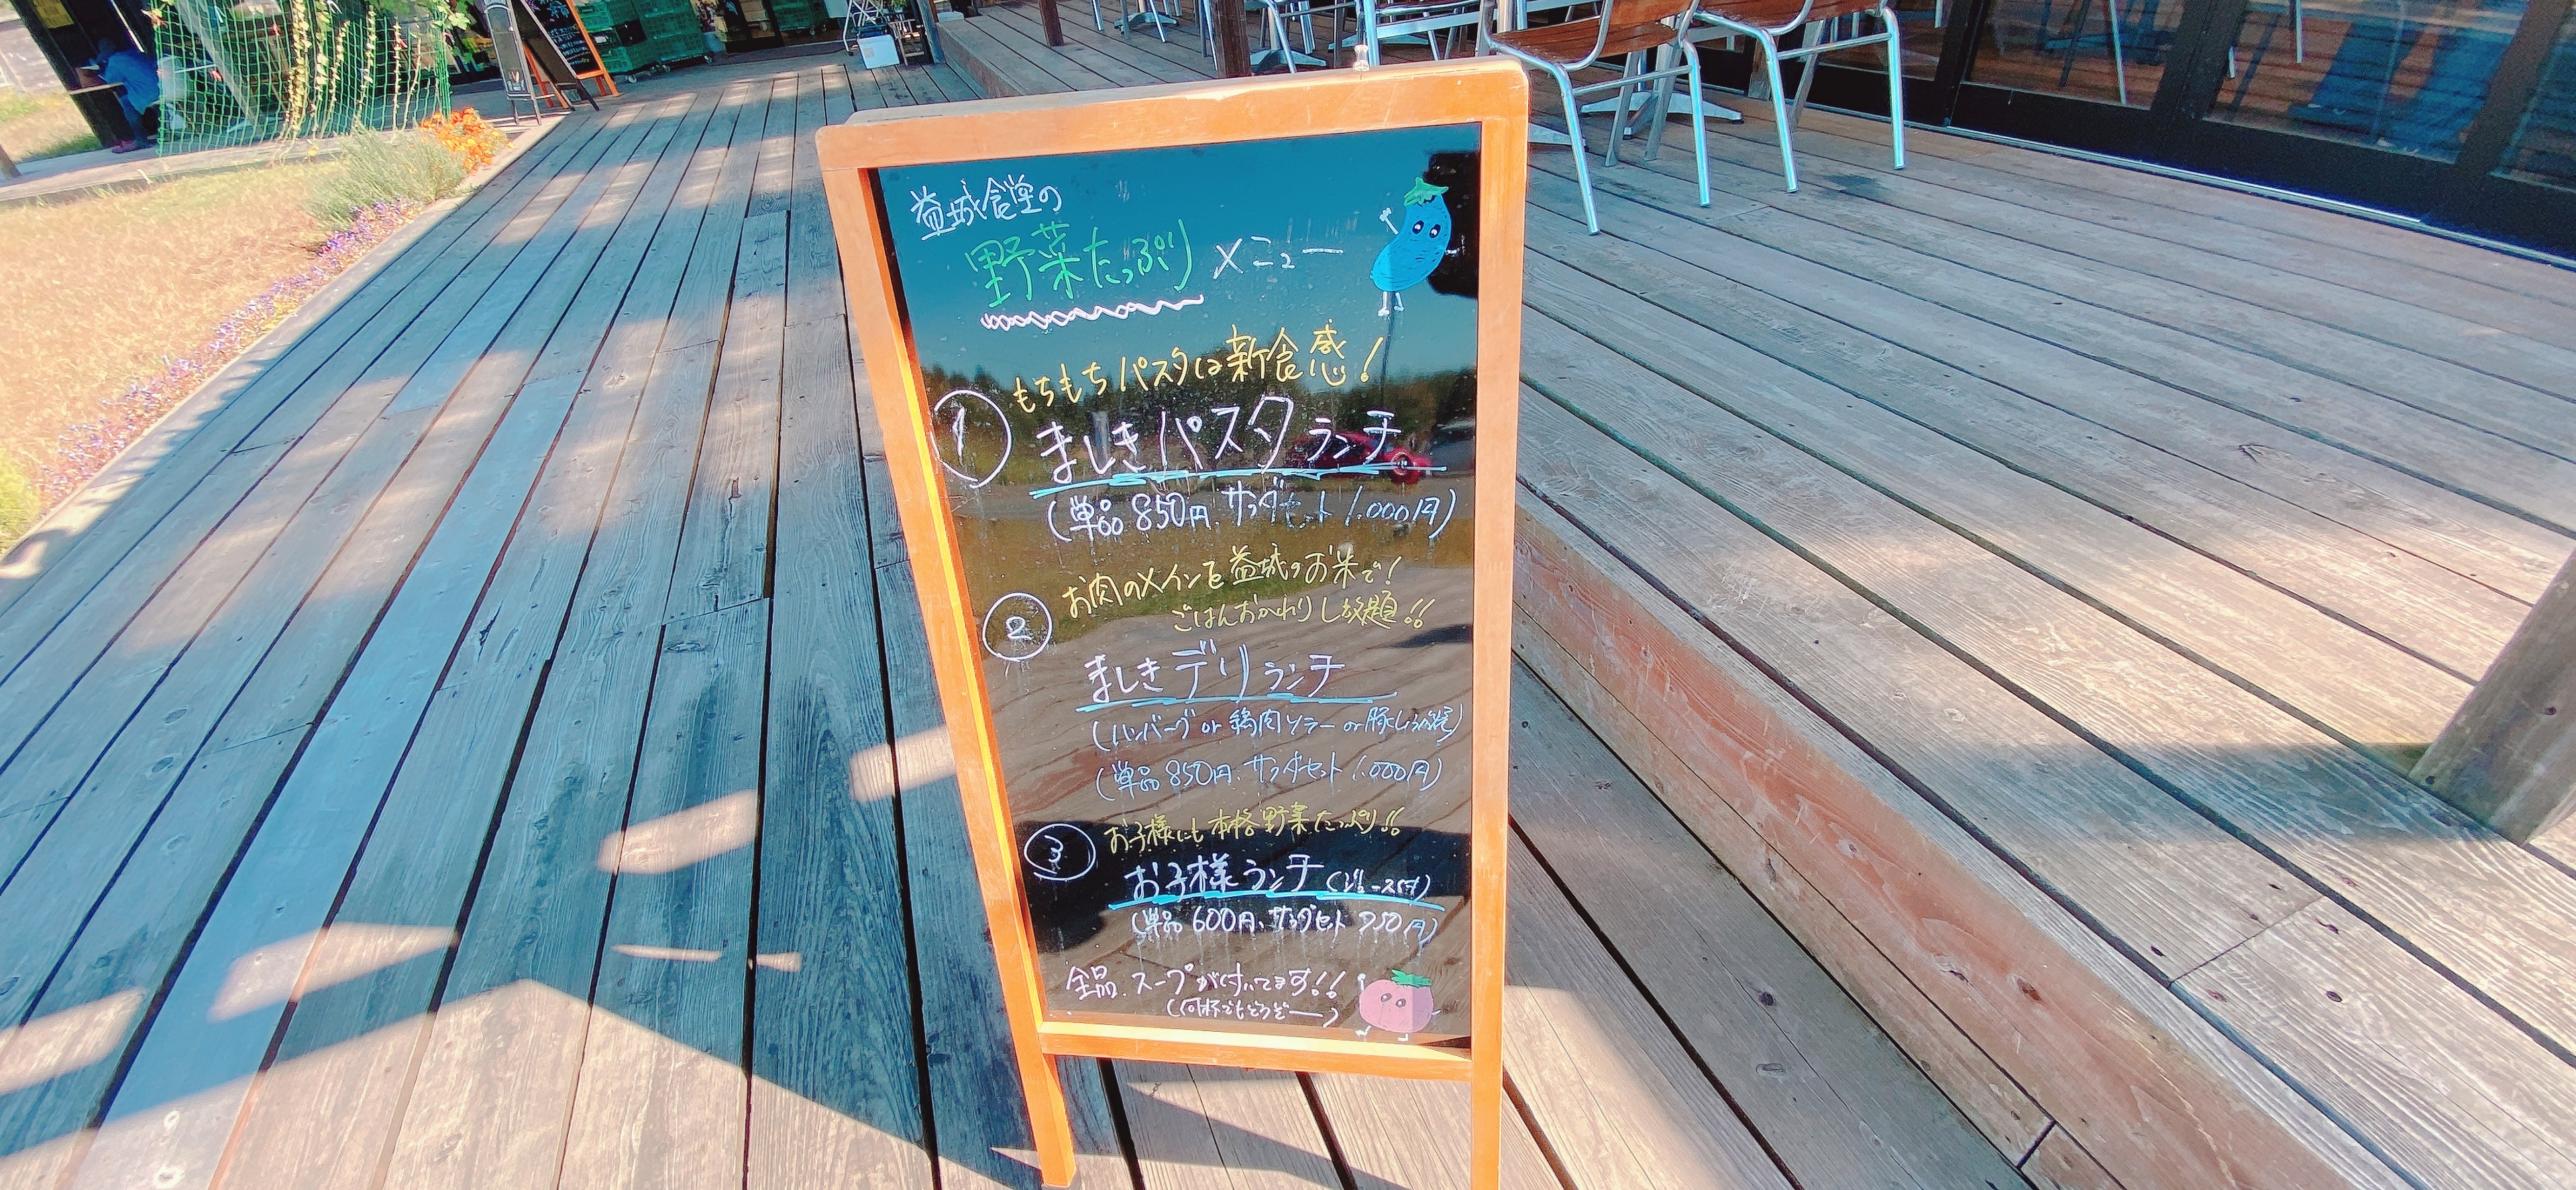 益城食堂の
野菜たっぷりメニュー
もちもちパスタは新食感！
① ましきパスタランチ
(単品850円、サラダセット1.000円)
お肉のメインを益城のお米で！
ごはんおかわりし放題！！
② ましきデリランチ
(ハンバーグ or 鶏肉ソテー or 豚しょうが焼)
(単品850円、サラダセット1.000円)
お子様にも本格野菜たっぷり！！
③ お子様ランチ(ジュース付)
(単品600円、サラダセット750円)
全品、スープが付いてます！！
(何杯でもどうぞー)